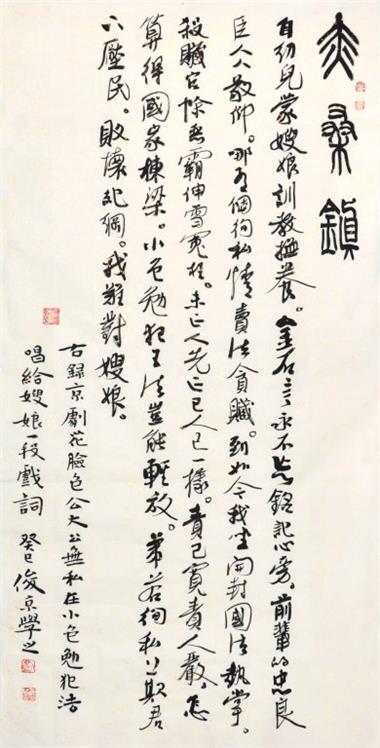 赤桑鎮
自幼兒蒙嫂娘訓教撫養。金石言永不忘銘記心旁。前輩的忠良
臣人人敬仰。哪有個徇私情賣法貪贓。到如今我坐開封國法執掌。
殺贓官除惡霸伸雪冤枉。未正人先正己人己一樣。責己寬責人嚴，怎
算得國家棟梁。小包勉犯王法豈能輕放。弟若徇私上欺君
下壓民。敗壞紀綱。我難對嫂娘。
右錄京劇花臉包公大公無私在小包勉犯法
唱給嫂娘一段戲詞 癸巳俊京學之